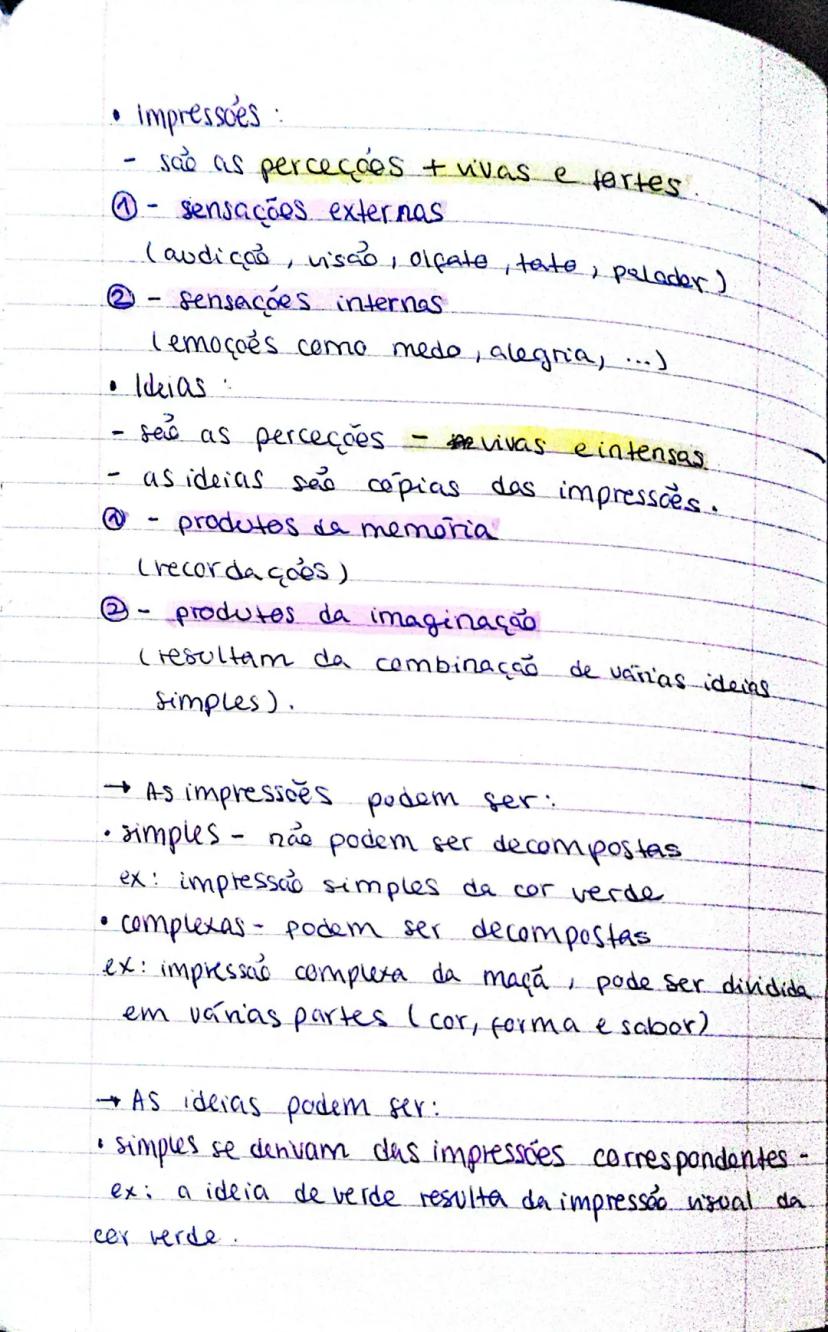 • impressões :
- são as perceções + vivas e fortes.
① - sensações externas
(audição, visão, olfato, tato, paladar)
② - sensações internas
(emoções como medo, alegria, ...)
• Ideias :
- são as perceções - vivas e intensas.
- as ideias são cópias das impressões.
① - produtos da memória
(recordações)
② - produtos da imaginação
(resultam da combinação de várias ideias
simples).
→ As impressões podem ser:
• simples - não podem ser decompostas
ex: impressão simples da cor verde
• complexas - podem ser decompostas
ex: impressão complexa da maçã, pode ser dividida
em várias partes (cor, forma e sabor)
→ As ideias podem ser:
• simples se derivam das impressões correspondentes -
ex: a ideia de verde resulta da impressão visual da
cor verde.